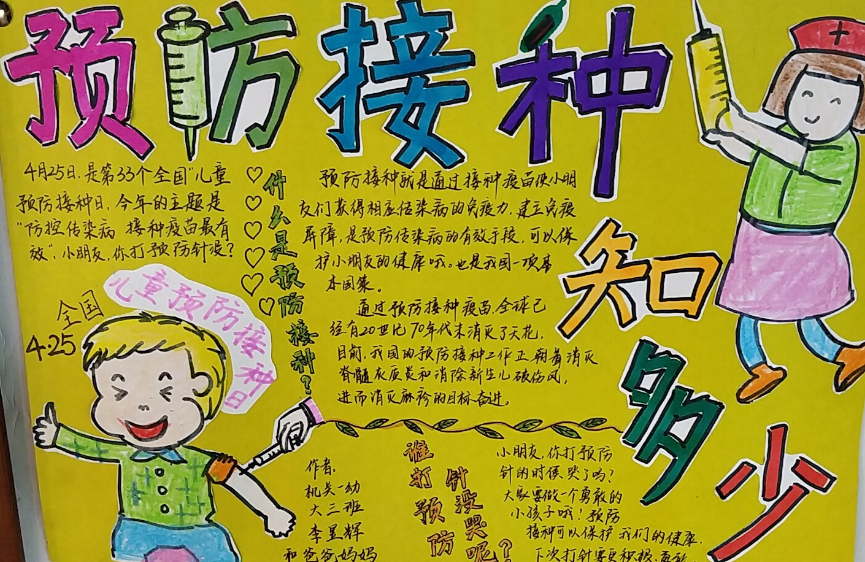 预防接种
知多少
4月25日,是第33个全国"儿童
预防接种日,今年的主题是
"防控传染病 接种疫苗最有
效",小朋友,你打预防针没?
全国
4.25
儿童预防接种日
什么是预防接种?
预防接种就是通过接种疫苗使小朋
友们获得相应传染病的免疫力,建立免疫
屏障,是预防传染病的有效手段,可以保
护小朋友的健康哦。也是我国一项基
本国策。
通过预防接种疫苗,全球已
经有20世纪70年代末消灭了天花,
目前,我国的预防接种工作正朝着消灭
脊髓灰质炎和消除新生儿破伤风,
进而消灭麻疹的目标奋进。
作者:
机关一幼
大三班
李昱辉
和爸爸妈妈
谁打预防
针没哭呢?
小朋友,你打预防
针的时候哭了吗?
大家要做一个勇敢的
小孩子哦!预防
接种可以保护我们的健康,
下次打针要更积极,